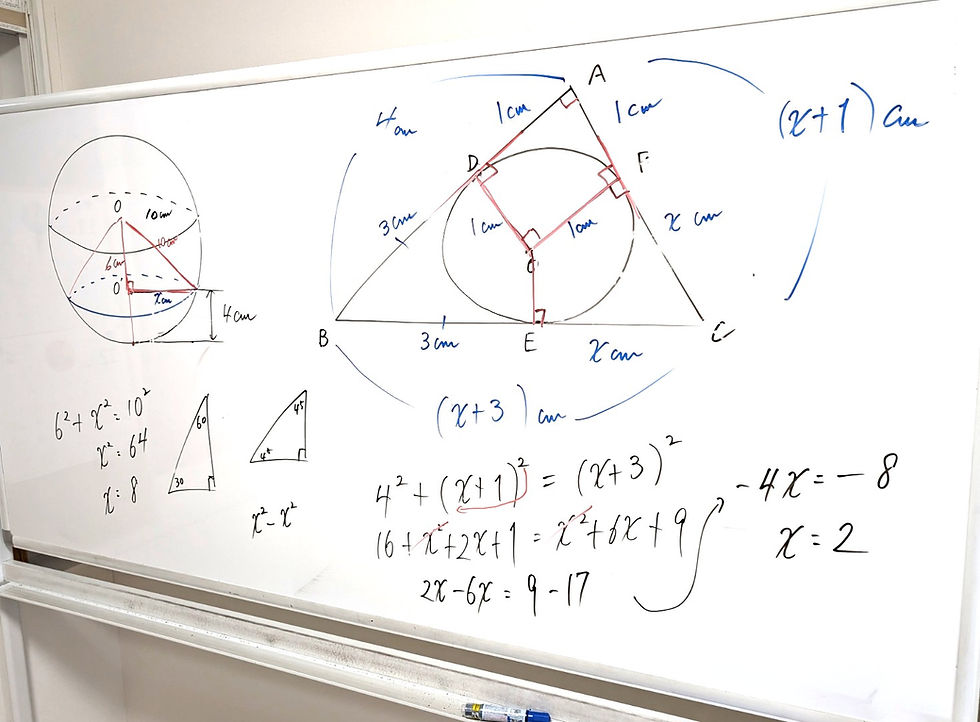 O
10cm
10cm
6cm
O'
xcm
4cm
6² + x² = 10²
x² = 64
x = 8
60
30
45
45
x² - x²
A
4cm
1cm
1cm
(x+1) cm
D
F
3cm
1cm
1cm
x cm
B
3cm
E
x cm
C
(x+3) cm
4² + (x+1)² = (x+3)²
16 + x² + 2x + 1 = x² + 6x + 9
2x - 6x = 9 - 17
-4x = -8
x = 2